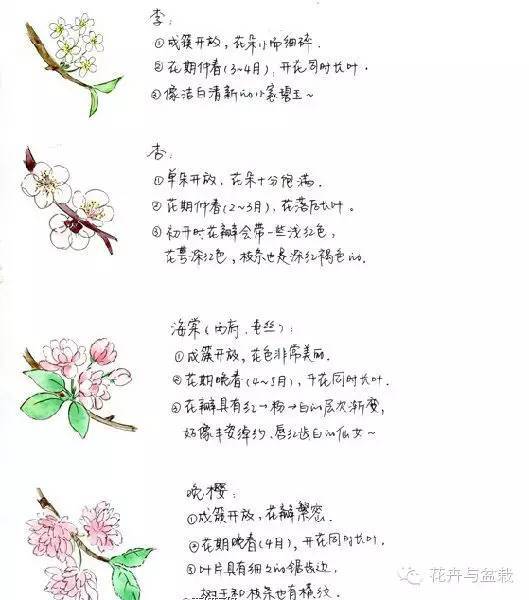 李：
①成簇开放，花朵小而细碎．
②花期仲春(3~4月)，开花同时长叶．
③像洁白清新的小家碧玉~
杏：
①单朵开放，花朵十分饱满．
②花期仲春(2~3月)，花落后长叶。
③初开时花瓣会带一些浅红色，
花萼深红色，枝条也是深红褐色的．
海棠(西府、垂丝)：
①成簇开放，花色非常美丽．
②花期晚春(4~5月)，开花同时长叶．
③花瓣具有红→粉→白的层次渐变，
好像丰姿绰约、唇红齿白的仙女~
晚樱：
①成簇开放，花瓣繁密．
②花期晚春(4月)，开花同时长叶．
③叶片具有细细的锯齿边，
树干和枝条也有横纹．
花卉与盆栽